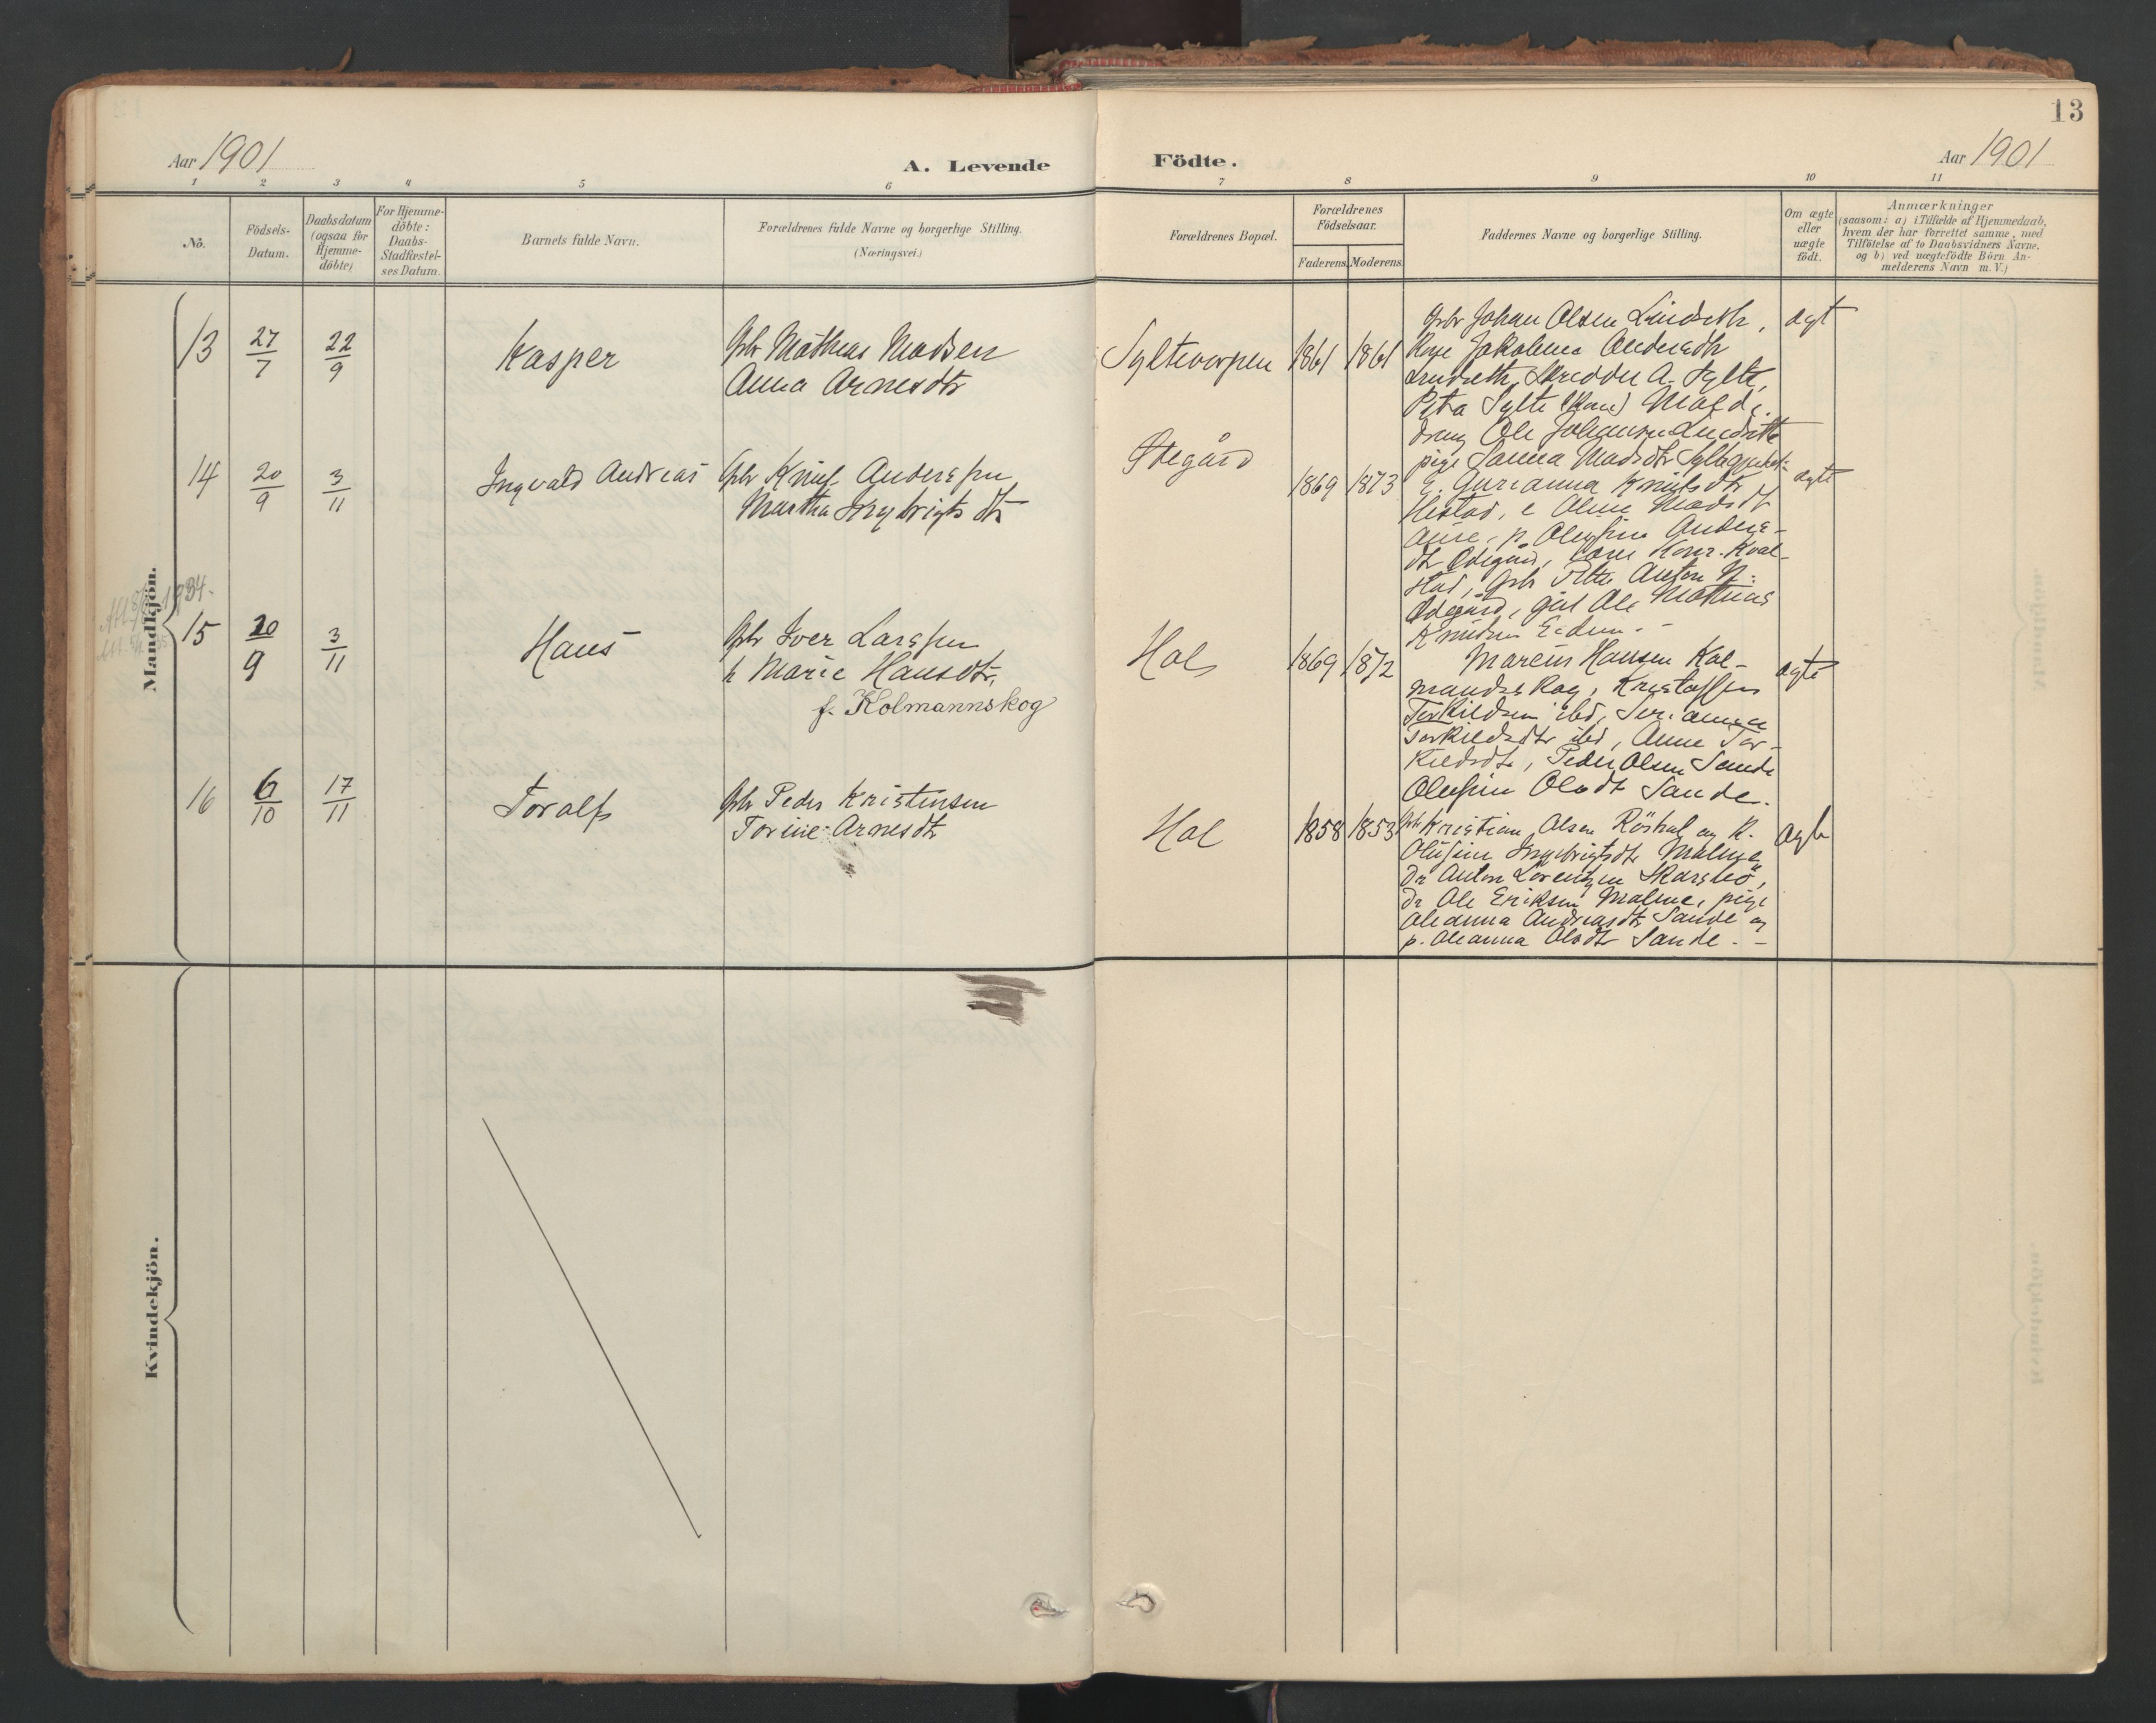 13
Aar 1901
A. Levende Födte.
Aar 1901
1 2 3 4 5 6 7 8 9 10 11
No.
Födsels-Datum.
Daabsdatum (ogsaa for Hjemme-döbte)
For Hjemme-döbte: Daabs-Stadfæstel-ses Datum.
Barnets fulde Navn.
Forældrenes fulde Navne og borgerlige Stilling.
(Næringsvei.)
Forældrenes Bopæl.
Forældrenes Födselsaar.
Faderens. Moderens.
Faddernes Navne og borgerlige Stilling.
Om ægte eller uægte födt.
Anmærkninger
(saasom: a) i Tilfælde af Hjemmedaab,
hvem der har forrettet samme, med
Tilföielse af to Daabsvidners Navne.
og b) ved uægtefödte Börn An-
melderens Navn m. V.)
Mandkjön.
13 27/7 22/9 Kasper
Gbr Mathias Madsen
Anna Arnesdtr
Syltevorpen 1861 1861
Gbr Johan Olsen Lindseth,
Kone Jakobine Andersdtr
Lindseth, Skredder A. Sylte,
Petra Sylte (Kone) Molde.
dreng Ole Johansen Lindseth
pige Sanna Madsdtr
ægt
14 20/9 3/11 Ingvald Andreas
Gbr Knut Anderssen
Martha Ingebrigtsdtr
Ødegård 1869 1873
E. Gurianna Knutsdtr
Hestad, e Oline Madsdtr
Aure, p. Olufine Anders-
dtr Ødegård,
stad, Gbr Anton
Ødegård, Ole Mathias
Knutsen Eidem.
ægte
1934.
15 20/9 3/11 Hans
Gbr Iver Larssen
h Marie Hansdtr,
f. Kolmannskog
Hol 1869 1872
Marius Hansen Kol-
mandskog, Kristoffer
Torkildsen ibd, Serianna
Torkildsdtr ibd, Anne Tor-
kildsdtr, Peder Olsen Sande
Olufine Olsdtr Sande.
ægte
16 6/10 17/11 Toralf
Gbr Peder Kristensen
Torine Arnesdtr
Hol 1858 1853
Gbr Kristian Olsen Röshol og K.
Olufine Ingebrigtsdtr Malme,
Dr Anton Lorentzen Skarshö,
Dr Ole Eriksen Malme, pige
Oleanna Andreasdtr Sande og
p. Oleanna Olsdtr Sande.
ægte
Kvindekjön.